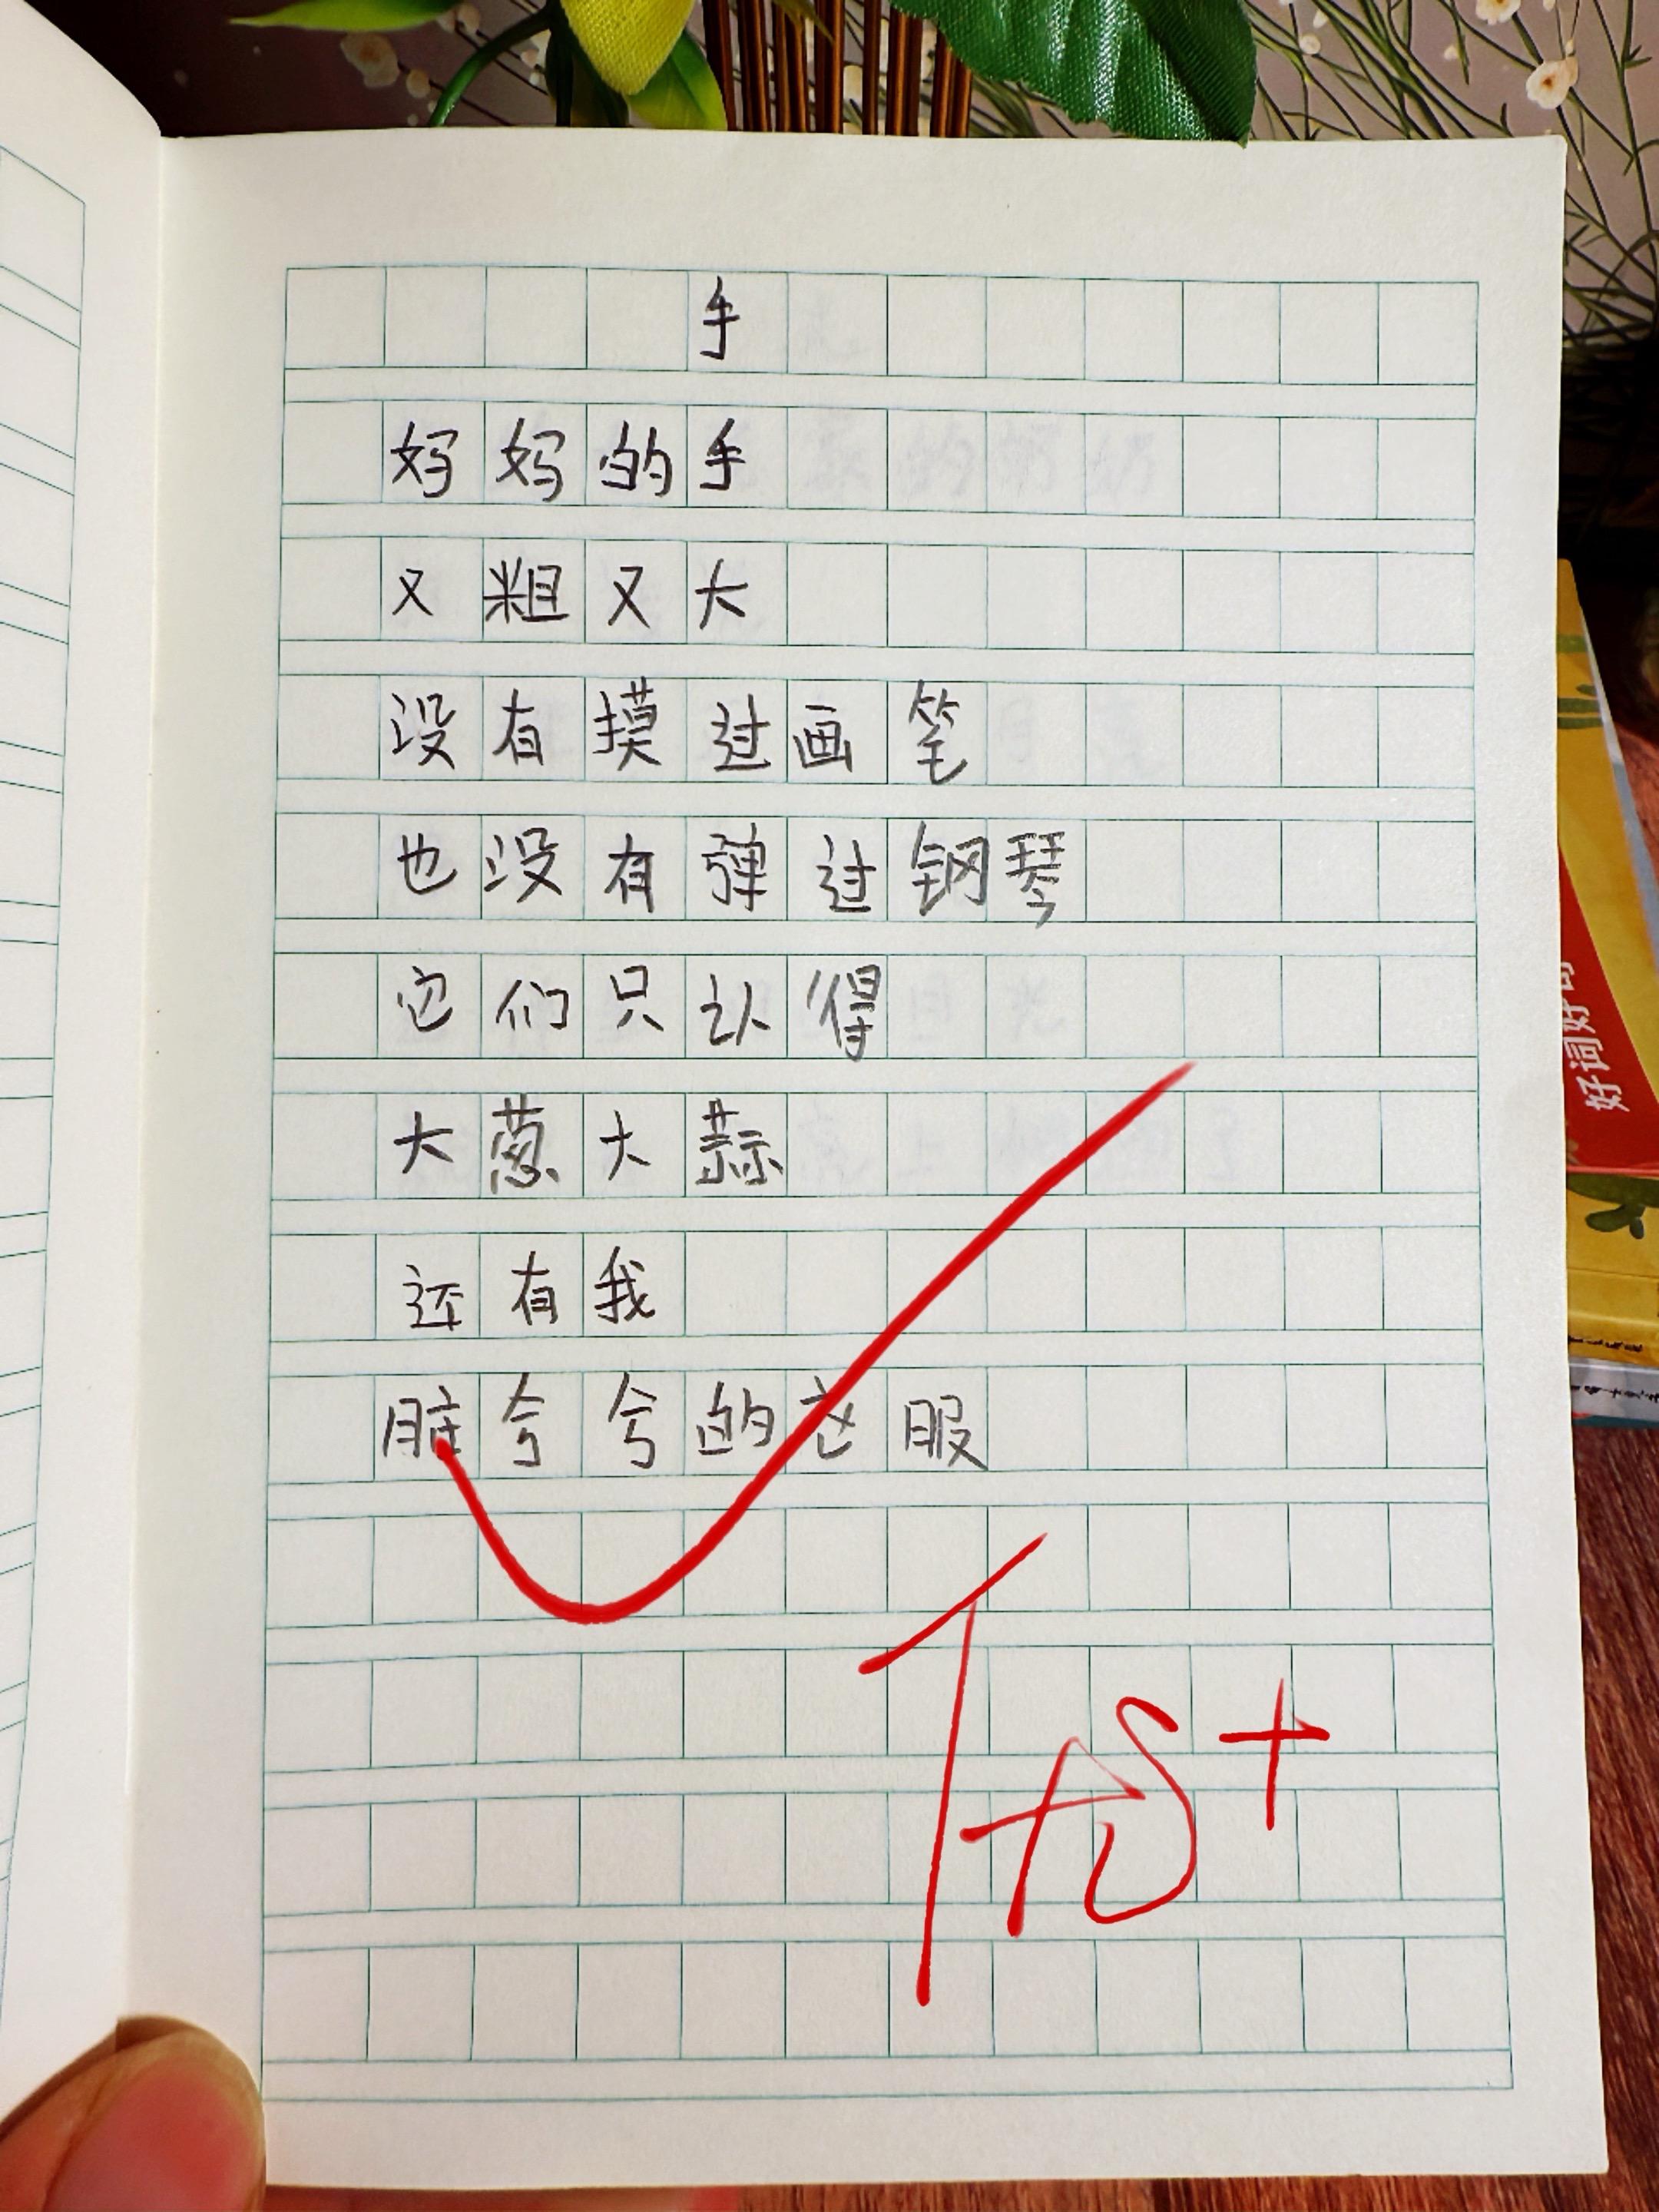 手
妈妈的手
又粗又大
没有摸过画笔
也没有弹过钢琴
它们只认得
大葱大蒜
还有我
脏兮兮的衣服
好词好句